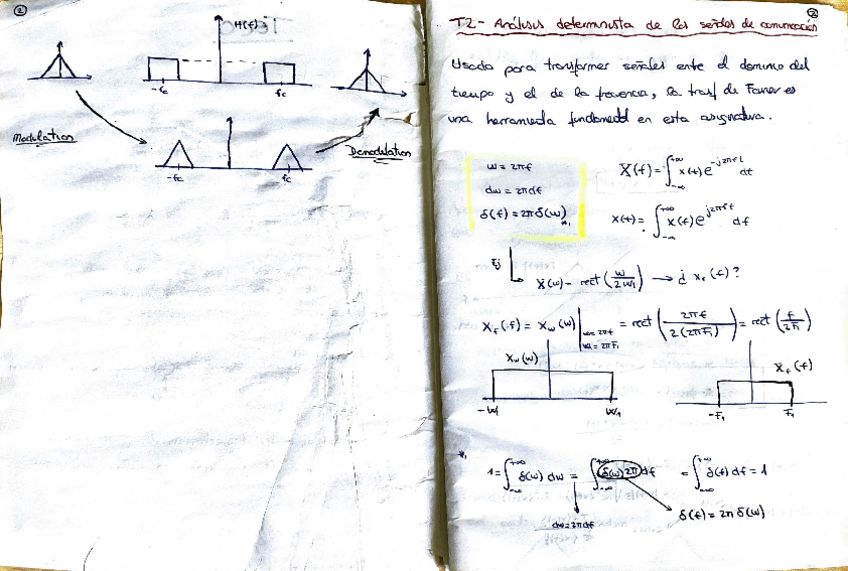 2
H(f)
-fc
fc
Modulation
-fc
fc
Demodulation
2
T2- Análisis determinista de las señales de comunicación
Usada para transformar señales entre el dominio del
tiempo y el de la frecuencia, la trasf de Fourier es
una herramienta fundamental en esta asignatura.
w = 2πf
dw = 2πdf
δ(f) = 2πδ(w) *1
X(f) = ∫_{-∞}^{+∞} x(t) e^{-j2πft} dt
x(t) = ∫_{-∞}^{+∞} X(f) e^{j2πft} df
Ej
X(w) = rect (w/2w1) → ¿ Xf (f) ?
Xf (f) = Xw (w) | w = 2πf, w1 = 2πF1 = rect (2πf / 2(2πF1)) = rect (f/2F1)
Xw (w)
-W1
W1
Xf (f)
-F1
F1
*1
1 = ∫_{-∞}^{+∞} δ(w) dw = ∫_{-∞}^{+∞} δ(w) 2π df = ∫_{-∞}^{+∞} δ(f) df = 1
dw = 2πdf
δ(f) = 2π δ(w)